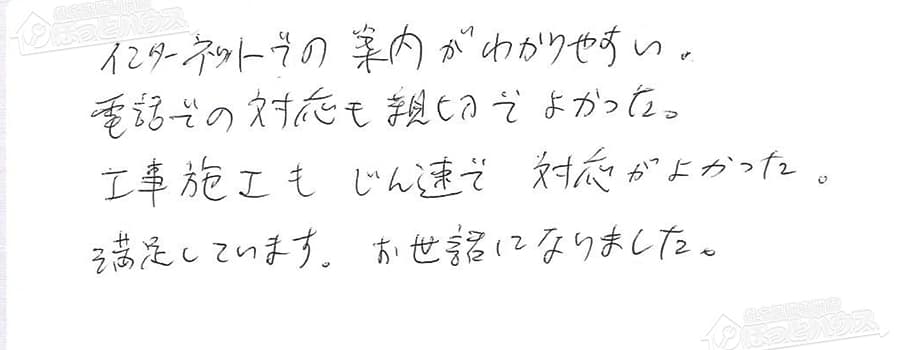 インターネットでの案内がわかりやすい。
電話での対応も親切でよかった。
工事施工も じん速で 対応がよかった。
満足しています。お世話になりました。
ほっとハウス
ほっとハウス